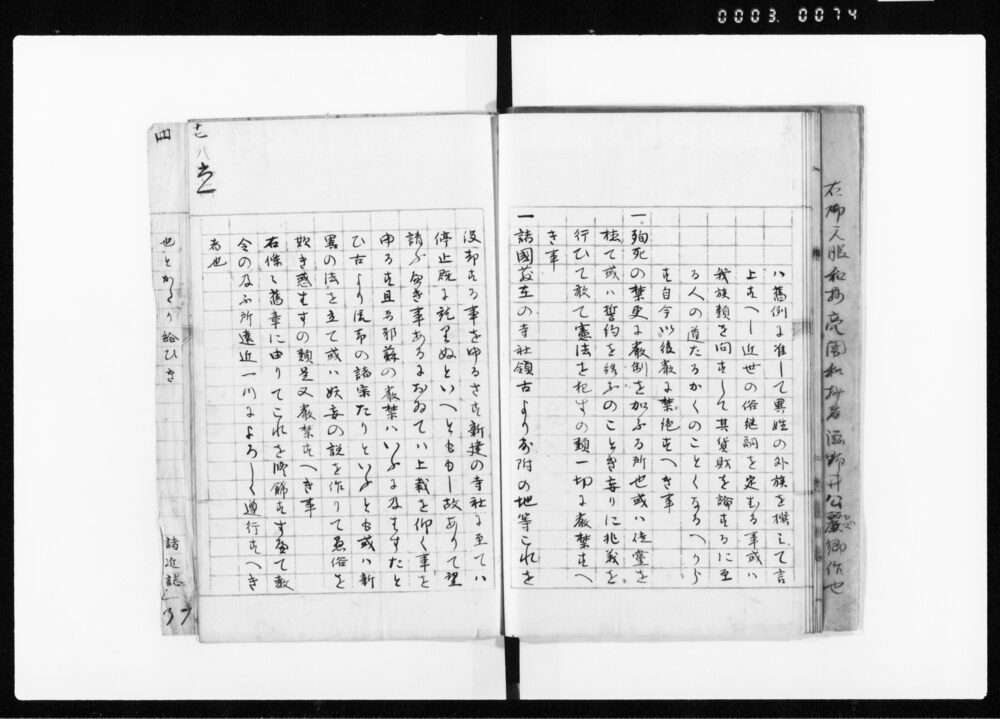 0003.0074
ハ舊例に准して異姓の外族を撰みて言
上すへし近世の俗継嗣を定むる事或ハ
我族類を問すして其貨財を論するに至
る人の道たるかくのことくなるへから
す自今以後厳に禁絶すへき事
一殉死の禁更に厳制を加ふる所也或ハ
極て或ハ誓約を結ふのことき妄りに非義を
行ひて敢て憲法を犯すの類一切に厳禁すへ
き事
一諸國散在の寺社領古より寄附の地等これを
没却する事をゆるさす新建の寺社に至てハ
停止既に訖りぬといへとももし故ありて望
請ふへき事あるにおゐてハ上裁を仰く事を
ゆるす且又耶蘇の厳禁ハいふに及はすたと
ひ古より流布の諸宗たりといふとも或ハ新
異の法を立て或ハ妖妄の説を作りて愚俗を
欺き惑はすの類是又厳禁すへき事
右條々舊章に由りてこれを脩飾す宜く教
令の及ふ所遠近一例によろしく遵行すへき
者也
也とかくり給ひき
諸近誌
37